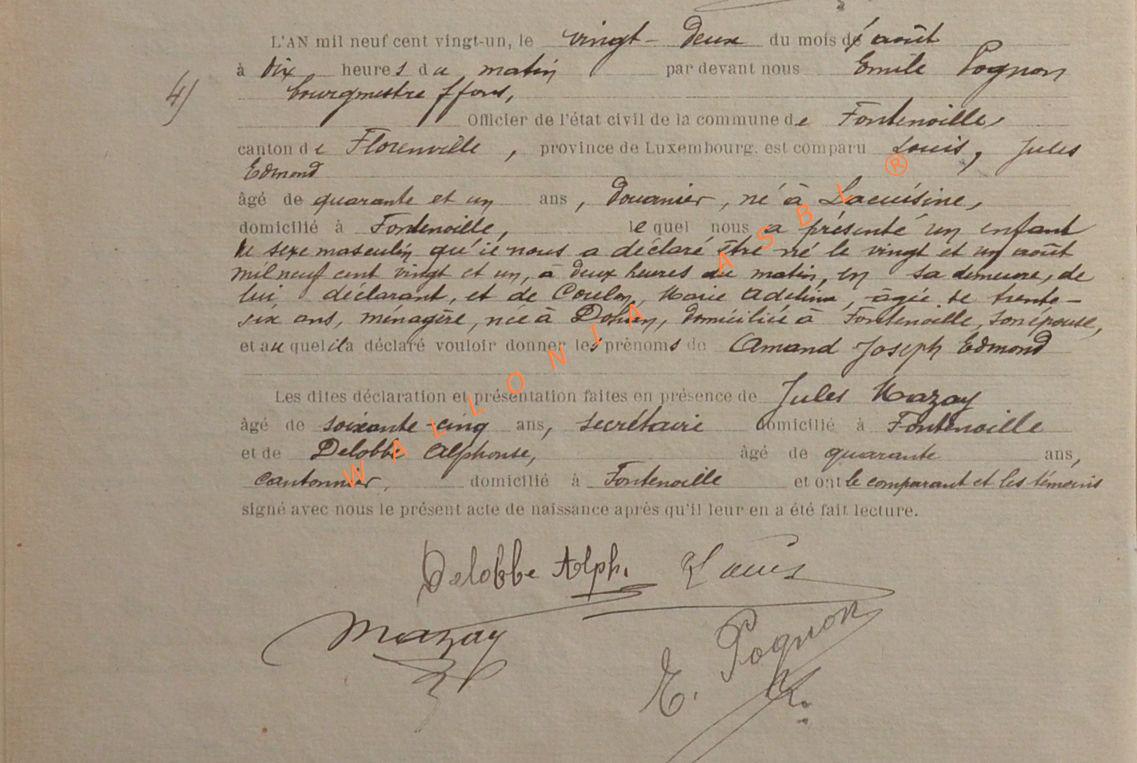 L'AN mil neuf cent vingt-un, le vingt-deux du mois d'août
4) à dix heures du matin par devant nous Emile Pognon
bourgmestre ffons,
Officier de l'état civil de la commune de Fontenoille,
canton de Florenville, province de Luxembourg, est comparu Louis, Jules
Edmond
âgé de quarante et un ans, douanier, né à Lacuisine,
domicilié à Fontenoille, lequel nous a présenté un enfant
de sexe masculin qu'il nous a déclaré être né le vingt et un août
mil neuf cent vingt et un, à deux heures du matin, en sa demeure, de
lui déclarant, et de Coulon, Marie Adeline, âgée de trente-
six ans, ménagère, née à Dohan, domiciliée à Fontenoille, son épouse,
et auquel il a déclaré vouloir donner les prénoms de Amand Joseph Edmond
Les dites déclaration et présentation faites en présence de Jules Mazay
âgé de soixante-cinq ans, secrétaire domicilié à Fontenoille
et de Delobbe Alphonse, âgé de quarante ans,
cantonnier, domicilié à Fontenoille et ont le comparant et les témoins
signé avec nous le présent acte de naissance après qu'il leur en a été fait lecture.
Delobbe Alph. Louis
Mazay
E. Pognon
WALLONIA ASBL ®